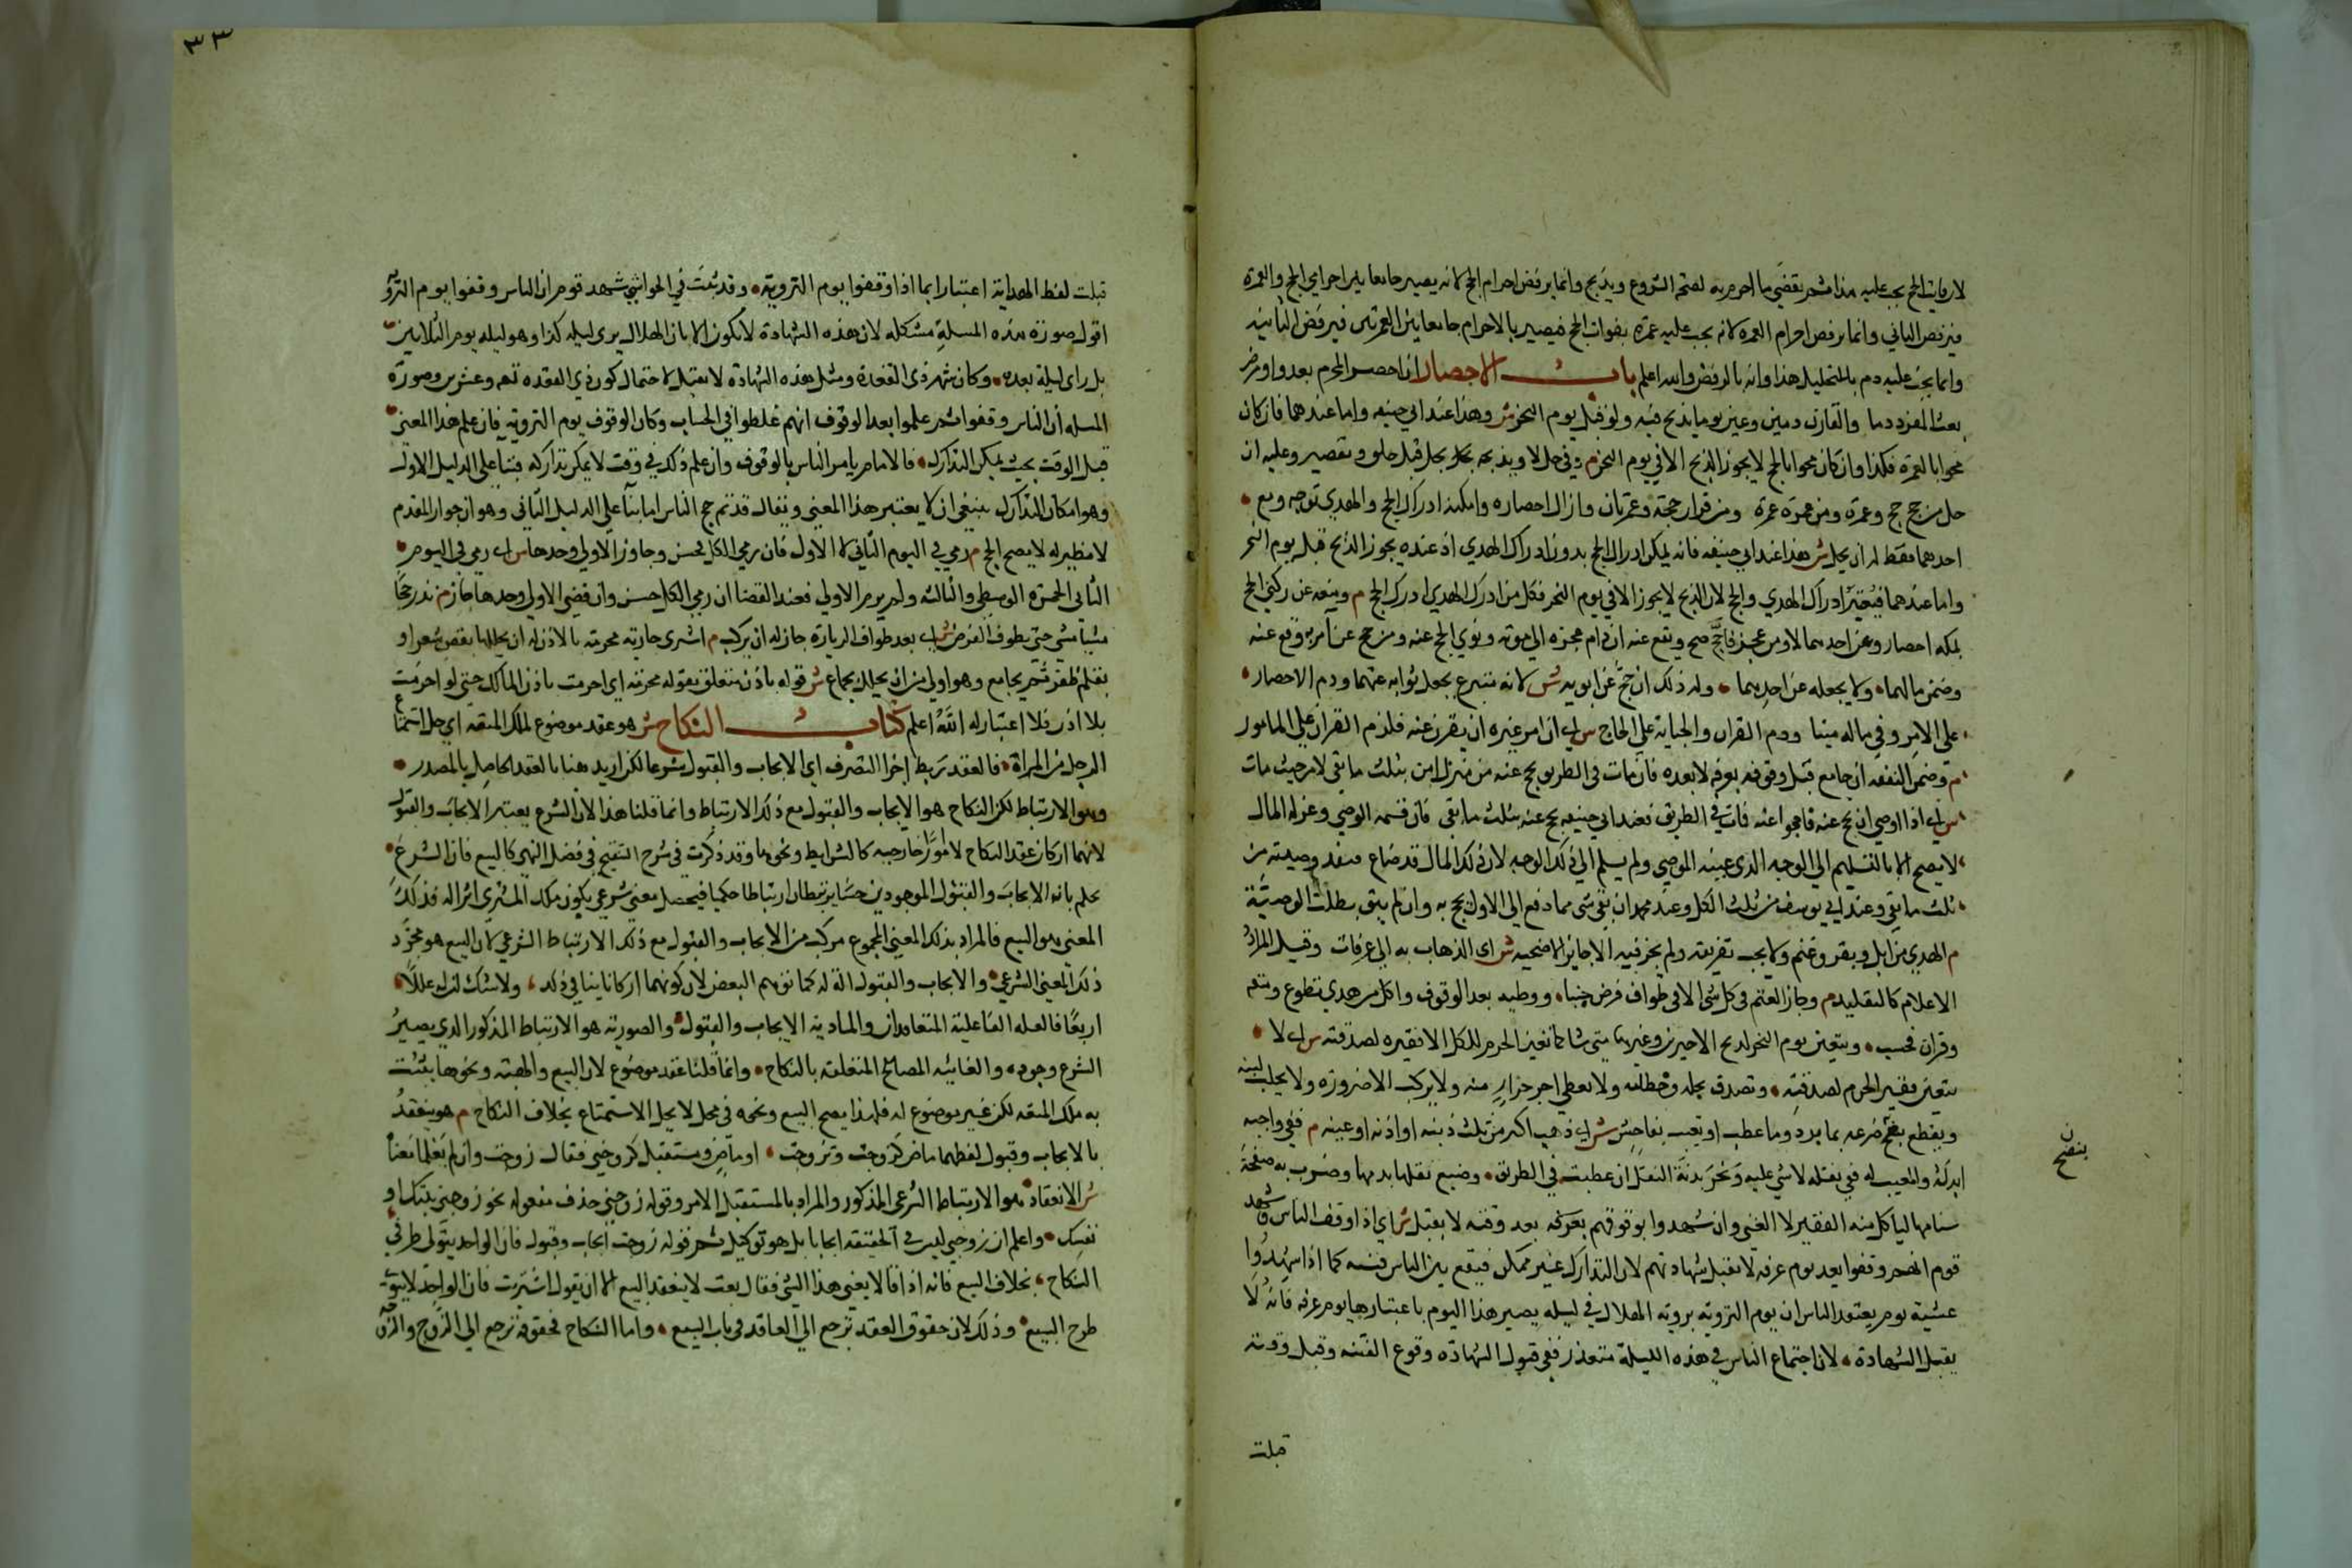 لان فايت الحج يجب عليه هذا ثم يقضي ما احرم به لصحة الشروع ويذبح وانما يرفض احرام الحج لانه يصير جامعا بين احرامي الحج والعمرة
فيرفض الثاني وانما يرفض احرام العمرة لانه يجب عليه عمرة بفوات الحج فيصير بالاحرام جامعا بين العمرتين فيرفض الثانية
وانما يجب عليه دم بالتحليل هذا وانه بالرفض والله اعلم باب الاحصار ان احصر المحرم بعدو او مرض
بعث المفرد دما والقارن دمين وعين يوما يذبح فيه ولو قبل يوم النحر ش وهذا عند ابي حنيفه واما عندهما فان كان
محرما بالعمرة فكذا وان كان محرما بالحج لا يجوز الذبح الا في يوم النحر م وفي حل لا وبذبحه يحل قبل حلق وتقصير وعليه ان
حل من حج حج وعمرة ومن عمرة عمرة ومن قران حجة وعمرتان واذا زال احصاره وامكنه ادراك الحج والهدي توجه ومع
احدهما فقط له ان يحل ش هذا عند ابي حنيفه فانه يمكن ادراك الحج بدون ادراك الهدي اذ عنده يجوز الذبح قبل يوم النحر
واما عندهما فيعتبر ادراك الهدي والحج لان الذبح لا يجوز الا في يوم النحر فكل من ادرك الهدي ادرك الحج م ومنعه عن ركني الحج
بمكه احصار وعن احدهما لا ومن عجز فاحج صح ويقع عنه ان دام عجزه الى موته ونوى الحج عنه ومن حج عن امريه وقع عنه
وضمن مالهما ولا يجعله عن احدهما وله ذلك ان حج عن ابويه ش لانه متبرع يجعل ثوابه عنهما ودم الاحصار
على الامر وفي ماله ميتا ودم القران والجناية على الحاج ش اي ان امر غيره ان يقرن عنه فلزم القران على المامور
م وضمن النفقه ان جامع قبل وقوفه بعرفه لا بعده فان مات في الطريق يحج عنه من منزل امره بثلث ما بقي لا من حيث مات
ش اي اذا اوصى ان يحج عنه فاحجوا عنه فمات في الطريق فعند ابي حنيفه يحج عنه بثلث ما بقي فان قسمة الوصي وعزله المال
لا يصح الا بالتسليم الى الوجه الذي عينه الموصي ولم يسلم الى ذلك الوجه لان ذلك المال قد ضاع فينفذ وصيته من
ثلث ما بقي وعند ابي يوسف من ثلث الكل وعند محمد ان بقي شي مما دفع الى الاول يحج به وان لم يبق بطلت الوصية
م الهدي من ابل وبقر وغنم ولا يجب تعريفه ولم يجز فيه الا جايز الاضحيه ش اي الذهاب به الى عرفات وقيل المراد
الاعلام كالتقليد م وجاز الغنم في كل شي الا في طواف فرض جنبا ووطيه بعد الوقوف واكل من هدي تطوع ومتعه
وقران فحسب وتعين يوم النحر لذبح الاخيرين وغيرهما متى شا كما تعين الحرم للكل لا فقيره لصدقته ش اي لا
يتعين فقير الحرم لصدقته وتصدق بجله وخطامه ولا يعطي اجر جزار منه ولا يركب الا ضرورة ولا يحلب لبنه
ويقطع بنضح ضرعه بما بارد وما عطب او تعيب بفاحش ش اي ذهب اكثر من ثلث ذنبه او اذنه او عينه م ففي واجبه
ابدله والمعيب له وفي نفله لا شي عليه ونحر بدنة النفل ان عطبت في الطريق وصبغ نعلها بدمها وضرب به صفحة
سنامها لياكل منه الفقير لا الغني وان شهدوا بوقوفهم بعرفه بعد وقته لا يقبل ش اي اذا وقف الناس فشهد
قوم انهم وقفوا بعد يوم عرفه لا تقبل شهادتهم لان التدارك غير ممكن فيقع بين الناس فتنه كما اذا شهدوا
عشية يوم يعتقد الناس ان يوم التروية بروية الهلال في ليلة يصير هذا اليوم باعتبارها يوم عرفه فانه لا
يقبل الشهادة لان اجتماع الناس في هذه الليلة متعذر ففي قبول الشهادة وقوع الفتنه وقبل وقته
ن
بنضح
قبلت
٣٣
قبلت لفظ الهداية اعتبارا بما اذا وقفوا يوم التروية وقد كتب في الحواشي شهد قوم ان الناس وقفوا يوم التروية
اقول صورة هذه المسلة مشكله لان هذه الشهادة لا تكون الا بان الهلال يرى ليلة كذا وهو ليلة يوم الثلاثين
بل راى ليلة بعده وكان شهر ذي القعدة ومثل هذه الشهادة لا يقبل لاحتمال كون ذي القعده تسعه وعشرين وصورة
المسله ان الناس وقفوا ثم علموا بعد الوقوف انهم غلطوا في الحساب وكان الوقوف يوم التروية فان علم هذا المعنى
قبل الوقت بحيث يمكن التدارك فالامام يامر الناس بالوقوف وان علم ذلك في وقت لا يمكن تداركه فبنا على الدليل الاول
وهو امكان التدارك ينبغي ان لا يعتبر هذا المعنى ويقال قد تم حج الناس اما بنا على الدليل الثاني وهو ان جواز المقدم
لا نظير له لا يصح الحج م رمي في اليوم الثاني لا الاول فان رمى الكل فحسن وجاوز الاولى وحدها ش اي رمى في اليوم
الثاني الجمرة الوسطى والثالثه ولم يرم الاولى فعند القضا ان رمى الكل حسن وان قضى الاولى وحدها جاز م نذر حجا
مشيا مشى حتى يطوف الفرض ش اي بعد طواف الزيارة جاز له ان يركب م اشترى جارية محرمة بالاذن له ان يحللها بقص شعر او
بقلم ظفر ثم يجامع وهو اولى من ان يحلل بجماع ش قوله باذن متعلق بقوله محرمة اي احرمت باذن المالك حتى لو احرمت
بلا اذن فلا اعتبار له الله اعلم كتاب النكاح ش هو عقد موضوع لملك المتعة اي حل استمتاع
الرجل من المراة فالعقد ربط اجزا التصرف اي الايجاب والقبول شرعا لكن اريد هنا بالعقد الحاصل بالمصدر
وهو الارتباط لكن النكاح هو الايجاب والقبول مع ذلك الارتباط وانما قلنا هذا لان الشرع يعتبر الايجاب والقبول
لانهما اركان عقد النكاح لا امورا خارجيه كالشرايط ونحوها وقد ذكرت في شرح التنقيح في فصل النهي كالبيع فان الشرع
يحكم بانه الايجاب والقبول الموجودين حسا يرتبطان ارتباطا حكميا فيحصل معنى شرعي يكون ملك المشتري اثرا له فذلك
المعنى هو البيع فالمراد بذلك المعنى المجموع مركب من الايجاب والقبول مع ذلك الارتباط الشرعي لا ان البيع هو مجرد
ذلك المعنى الشرعي والايجاب والقبول الة له كما توهم البعض لان كونهما اركانا ينافي ذلك ولا شك ان له عللا
اربعا فالعله الفاعلية المتعاقدان والمادية الايجاب والقبول والصورية هو الارتباط المذكور الذي يصير
الشرع وجوده والغائيه المصالح المتعلقه بالنكاح وانما قلنا عقد موضوع لان البيع والهبة ونحوهما يثبت
به ملك المتعه لكن غير موضوع له فلهذا يصح البيع ونحوه في محل لا يحل الاستمتاع بخلاف النكاح م هو ينعقد
بالايجاب وقبول لفظهما ماض كزوجت وتزوجت او ماض ومستقبل كزوجني فقال زوجت وان لم يعلما معناه
ش الانعقاد هو الارتباط الشرعي المذكور والمراد بالمستقبل الامر وقوله زوجني حذف مفعوله نحو زوجني بنتك او
نفسك واعلم ان زوجني ليس في الحقيقه ايجابا بل هو توكيل ثم قوله زوجت ايجاب وقبول فان الواحد يتولى طرفي
النكاح بخلاف البيع فانه اذا قال بعني هذا الشي فقال بعت لا ينعقد البيع الا ان يقول اشتريت فان الواحد لا يتولى
طرفي البيع وذلك لان حقوق العقد ترجع الى العاقد في باب البيع واما النكاح فحقوقه ترجع الى الزوج والزوجة